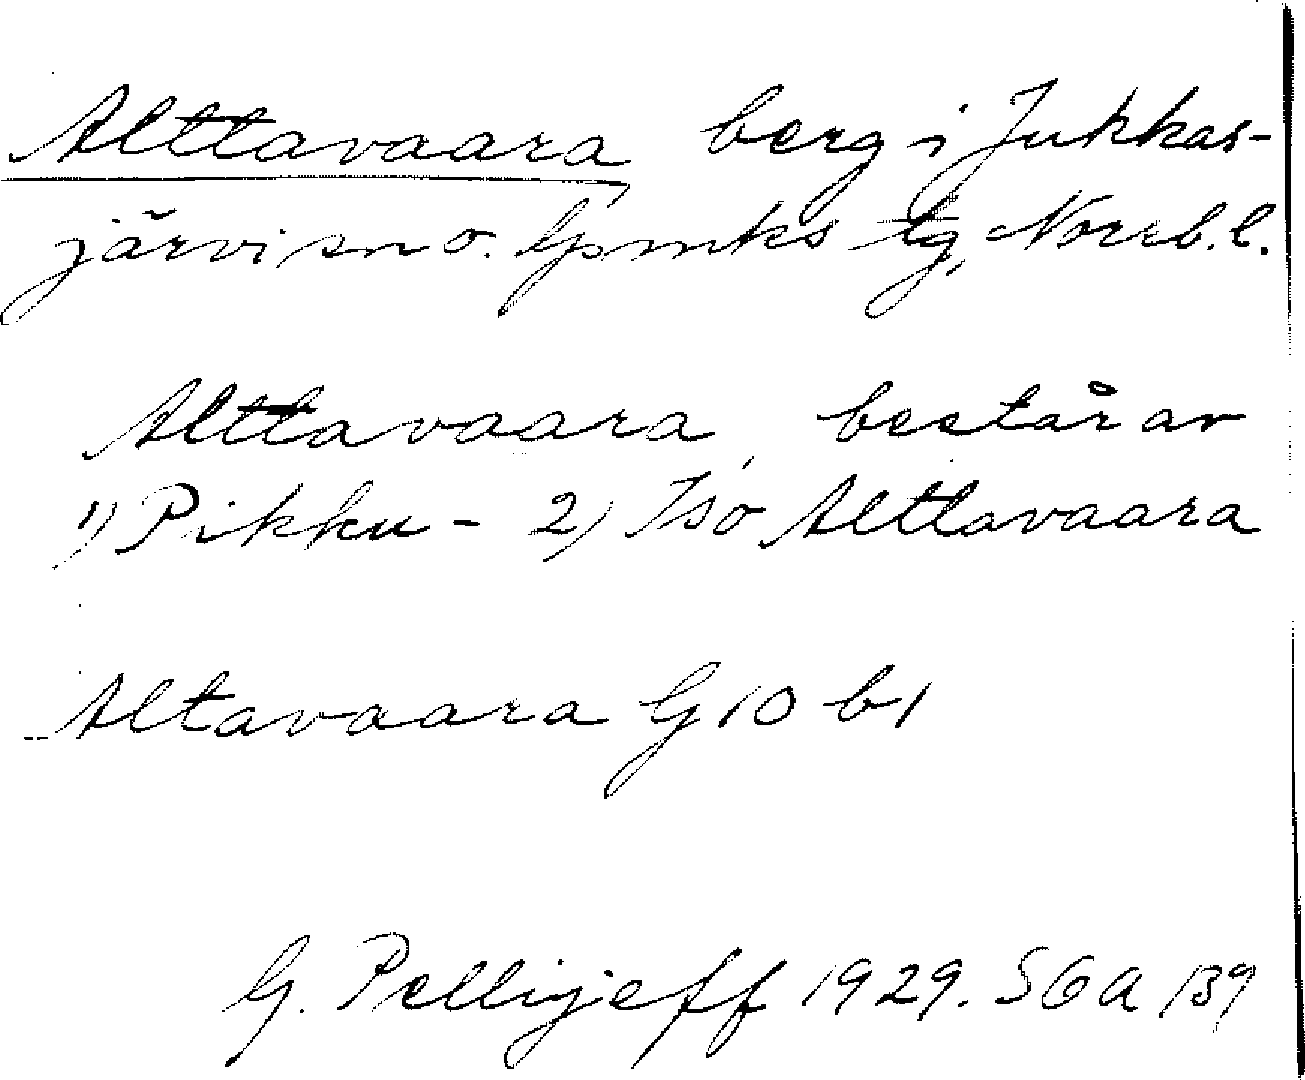 Alttavaara berg i Jukkas-
järvi sn o. lpmks tg, Norrb. l.
Alttavaara, består av
1) Pikku- 2) Iso Alttavaara
Altavaara G 10 b1
G. Pellijeff 1929. SGA 139